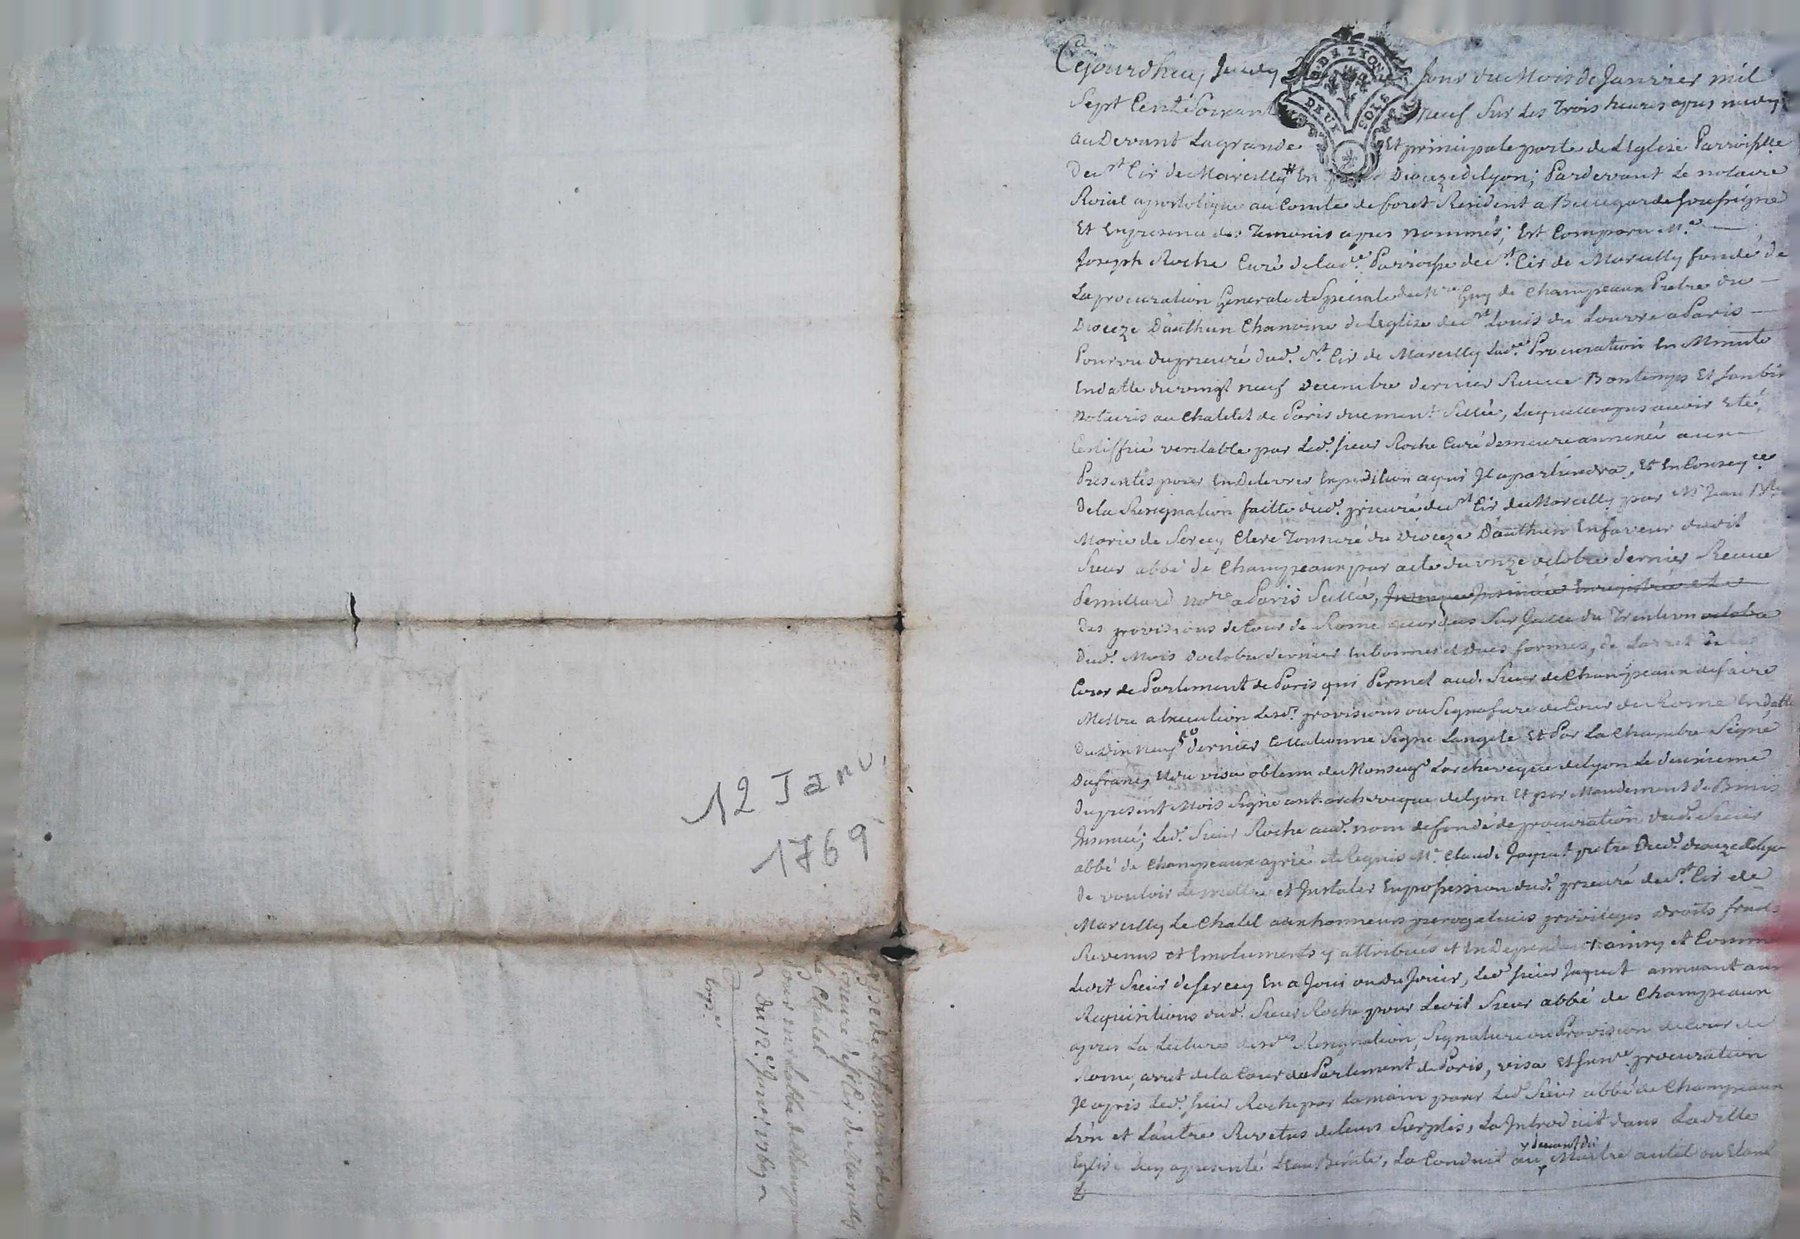 12 Janv.
1769
prise de possession du
prieuré de St Cir de Marcilly
le Chatel
pour mr l'abbé de Champeaux
Du 12e Janvr 1769
Exp.é
G. DE LYON
DEUX SOLS
Cejourdhuy Jeudy jour du Mois de Janvier mil
Sept Cent Soixante neuf Sur les Trois heures apres midy
au Devant La grande Et principale porte de L'Eglise Parroissielle
De st Cir de Marcilly En Dioceze de Lyon; Pardevant Le notaire
Roial apostolique au Comté de foret Resident a Bellegarde soussigné
Et En presence des Temoins apres nommés; Est Comparu Mre
Joseph Roche Curé de lade Parroisse de st Cir de Marcilly fondé de
La procuration Generale et Speciale de Mre Guy de Champeaux Pretre du
Dioceze Dauthun Chanoine de L'Eglise de st Louis du Louvre a Paris
Pourvu du prieuré dud. St Cir de Marcilly Lade Procuration En Minute
En datte du vingt neuf decembre dernier Recue Bontemps Et
notaires au Chatelet de Paris duement Sellée, Laquelle apres avoir eté
Certiffiée veritable par Led. sieur Roche Curé demeure annexée aux
Presentes pour En Delivrer Expedition a qui Il apartiendra, Et En Conseqce
De la Resignation faitte dud. prieuré de st Cir de Marcilly par Mre Jean Bte
Marie de Sercey Clerc Tonsuré du Dioceze Dauthun En faveur dudit
Sieur abbé de Champeaux par acte du onze octobre dernier Recue
nore a Paris Sellée,
Des provisions de Cour de Rome accordées Sur Icelle du Trente un octobre
Dud. Mois d'octobre dernier En bonnes et dues formes, de Larret de
Cour de Parlement de Paris qui Permet aud. Sieur de Champeaux de faire
Mettre a Execution Lesd. provisions ou Signature de Cour de Rome En datte
Du Dix neuf dernier Collationné Signé Langelé Et Par La Chambre Signé
Dufranc, Et du visa obtenu de Monseigr Larcheveque de Lyon Le deuxieme
Du present Mois Signé ant. archeveque de Lyon Et par Mandement
Insinué; Led. Sieur Roche aud. nom de fondé de procuration dud. Sieur
abbé de Champeaux a prié et Requis Mre Claude Jaquet pretre Dud. dioceze de Lyon
De vouloir Le mettre et Instaler En possession dud. prieuré de st Cir de
Marcilly Le Chatel aux honneurs prerogatives privileges droits fruits
Revenus et Emoluments y attribués et En Dependants ainsy et Comme
Ledit Sieur de Sercey En a Joui ou du Jouir, Led. sieur Jaquet annuant aux
Requisitions dud. Sieur Roche pour Ledit Sieur abbé de Champeaux
apres La Lecture desd. Resignation, Signature ou Provision de Cour de
Rome, arret de la Cour de Parlement de Paris, visa Et procuration
Il a pris Led. sieur Roche par la main pour Led. Sieur abbé de Champeaux
L'un et L'autre Revetus de leurs Surplis, La Introduit dans Laditte
Eglise Luy a presenté L'eau Benite, La Conduit au devant du Maitre autel ou Etant